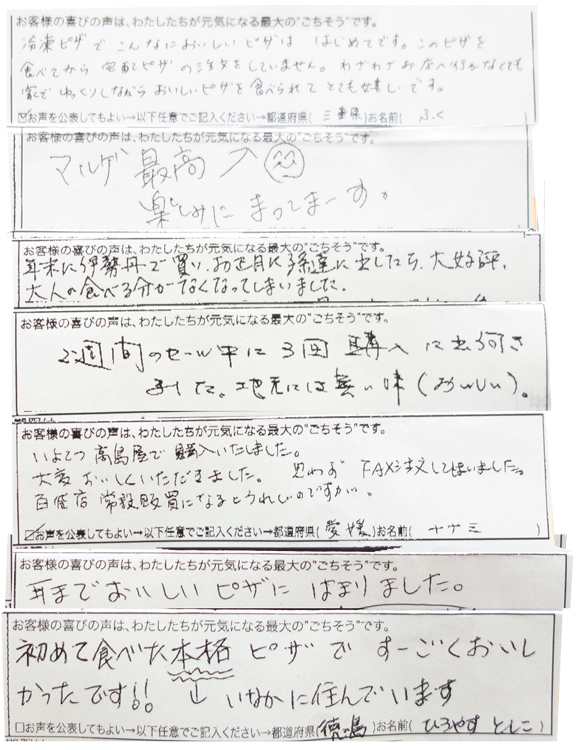 お客様の喜びの声は、わたしたちが元気になる最大の"ごちそう"です。
冷凍ピザでこんなにおいしいピザは はじめてです。このピザを
食べてから宅配ピザの注文をしていません。わざわざお店へ行かなくても
家でゆっくりしながらおいしいピザを食べられてとても嬉しいです。
☑お声を公表してもよい→以下任意でご記入ください→都道府県(三重県)お名前( ふく
お客様の喜びの声は、わたしたちが元気になる最大の"ごちそう"です。
マルゲ最高
楽しみにまってまーす。
お客様の喜びの声は、わたしたちが元気になる最大の"ごちそう"です。
年末に伊勢丹で買い、お正月に孫達に出したら、大好評、
大人の食べる分がなくなってしまいました。
お客様の喜びの声は、わたしたちが元気になる最大の"ごちそう"です。
2週間のセール中に3回購入に出向き
ました。地元には無い味(おいしい)。
お客様の喜びの声は、わたしたちが元気になる最大の"ごちそう"です。
いよてつ高島屋で購入いたしました。
大変おいしくいただきました。思わずFAX注文してしまいました。
百貨店常設販売になるとうれしいのですが。
☑お声を公表してもよい→以下任意でご記入ください→都道府県(愛媛)お名前( ナナミ )
お客様の喜びの声は、わたしたちが元気になる最大の"ごちそう"です。
耳までおいしいピザに はまりました。
お客様の喜びの声は、わたしたちが元気になる最大の"ごちそう"です。
初めて食べた本格ピザで すーごくおいし
かったです!! いなかに住んでいます
□お声を公表してもよい→以下任意でご記入ください→都道府県(徳島)お名前(ひろやす としこ)